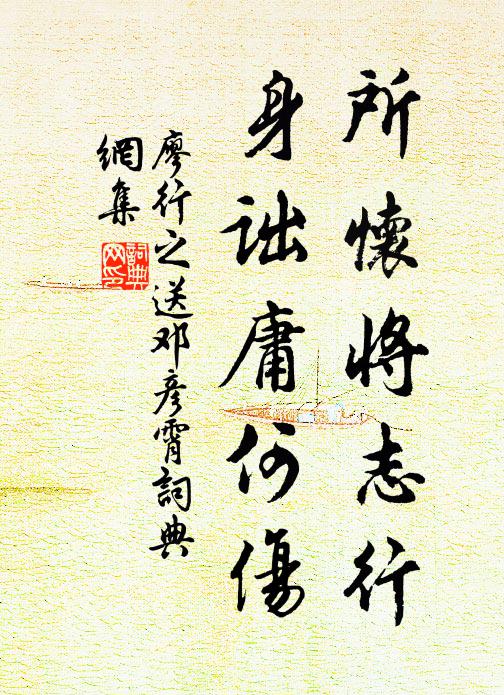 所懷將志行
身詘庸何傷
廖行之送邓彦霄詞典
網集
詞典网印